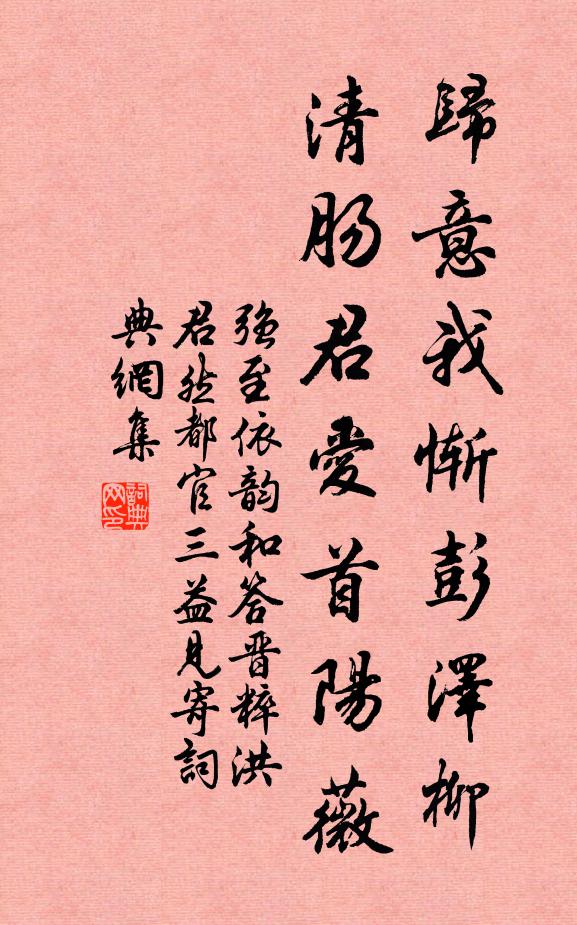 歸意我慚彭澤柳
清腸君愛首陽薇
強至依韵和答晋粹洪
君然都官三益見寄詞
典網集
詞典
网印